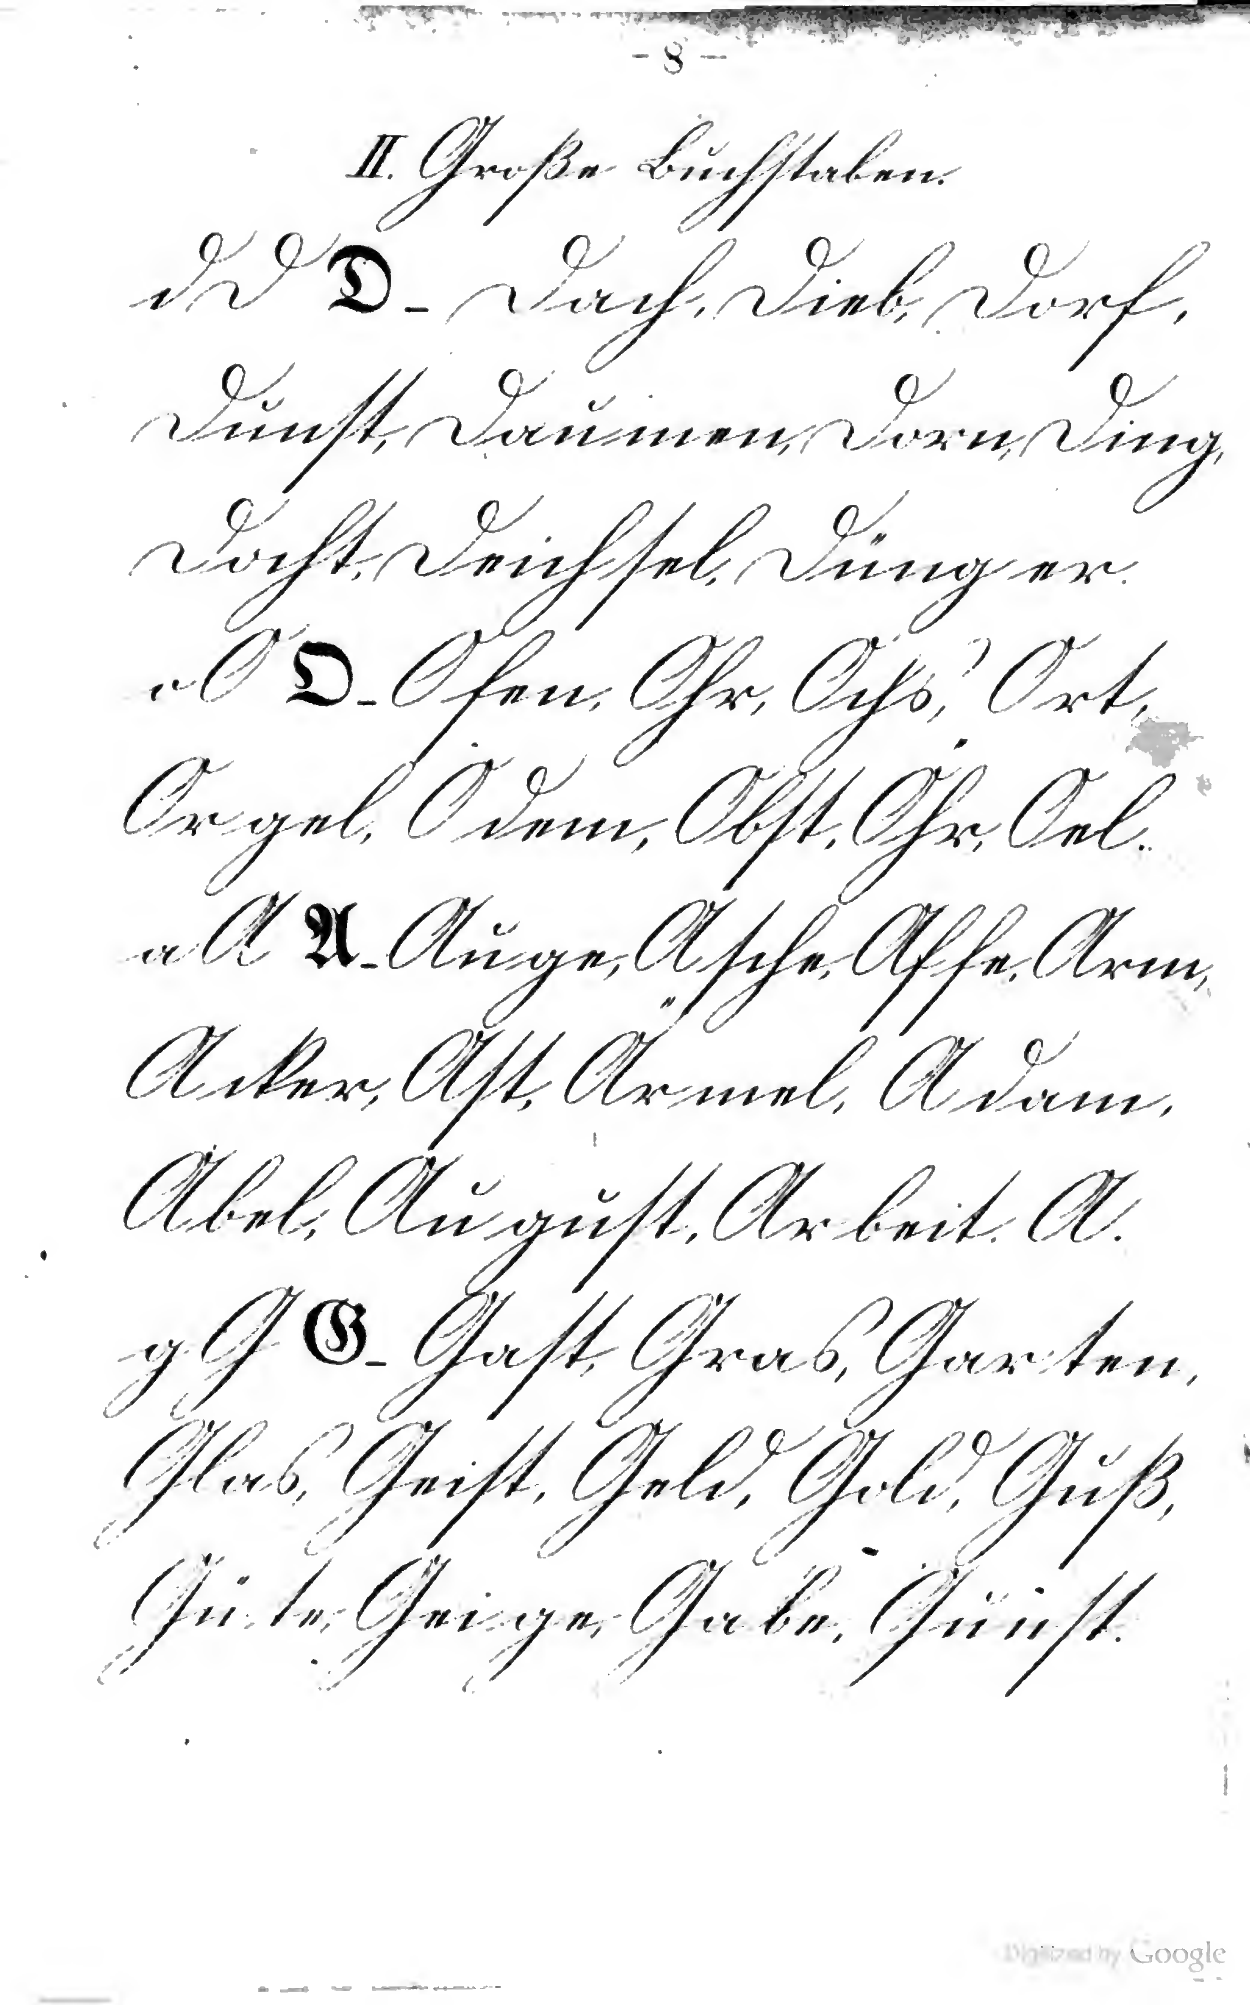 - 8 -
II. Große Buchstaben.
d D D - Dach, Dieb, Dorf,
Dunst, Daumen, Dorn, Ding,
Docht, Deichsel, Dünger.
o O O - Ofen, Ohr, Ochs, Ort,
Orgel, Odem, Obst, Öhr, Oel.
a A A - Auge, Asche, Affe, Arm,
Acker, Ast, Ärmel, Adam,
Abel, August, Arbeit. A.
g G G - Gast, Gras, Garten,
Glas, Geist, Geld, Gold, Guß,
Güte, Geige, Gabe, Gunst.
Digitized by Google